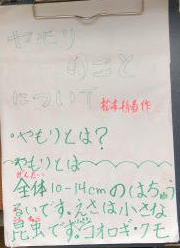 やもり
のこと
について
・やもりとは?
やもりとは
ぜんたい
全体10-14cmのはちゅう
るいです。えさは小さな
昆虫です。コオロギ・クモ